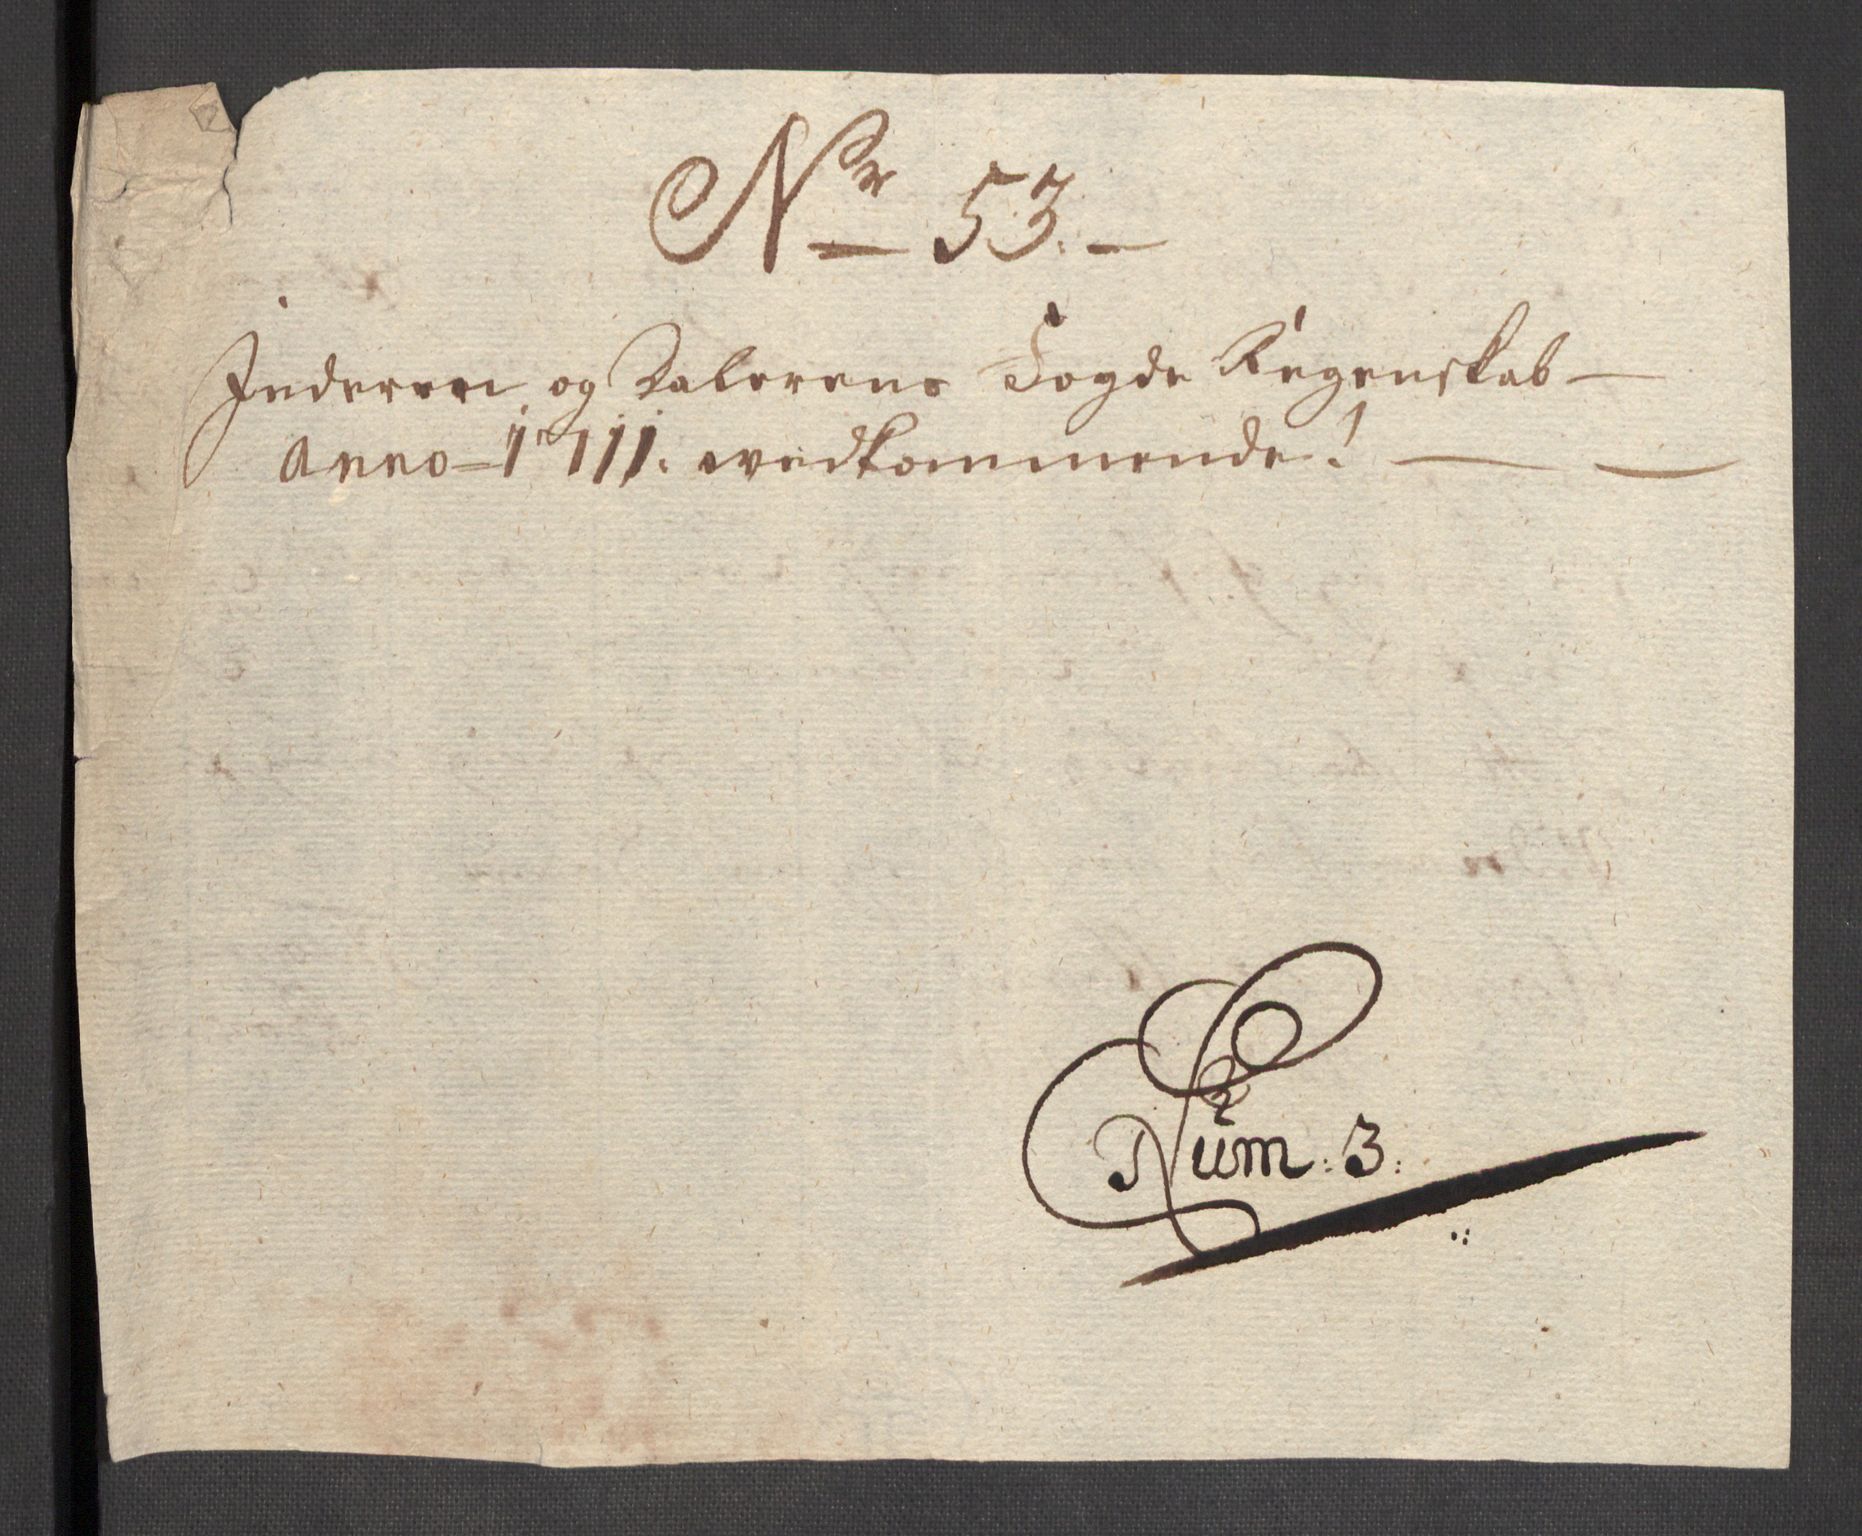 Nr 53.
Inderøen og Værdalens Fogde Regenskab
Anno 1711. vedkommende!
Num: 3: